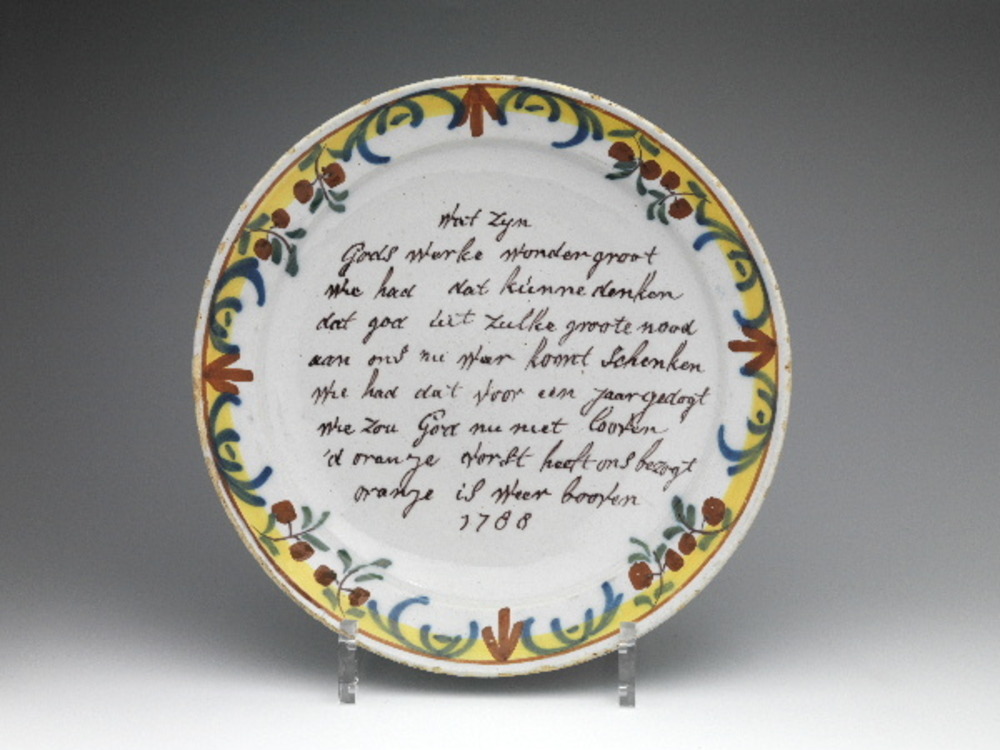 Wat zyn
Gods werke wonder groot
wie had dat kunne denken
dat god uit zulke groote nood
aan ons nu weer komt schenken
wie had dat voor een jaar gedogt
wie zou God nu niet looven
'd oranje vorst heeft ons bezogt
oranje is weer booven
1788